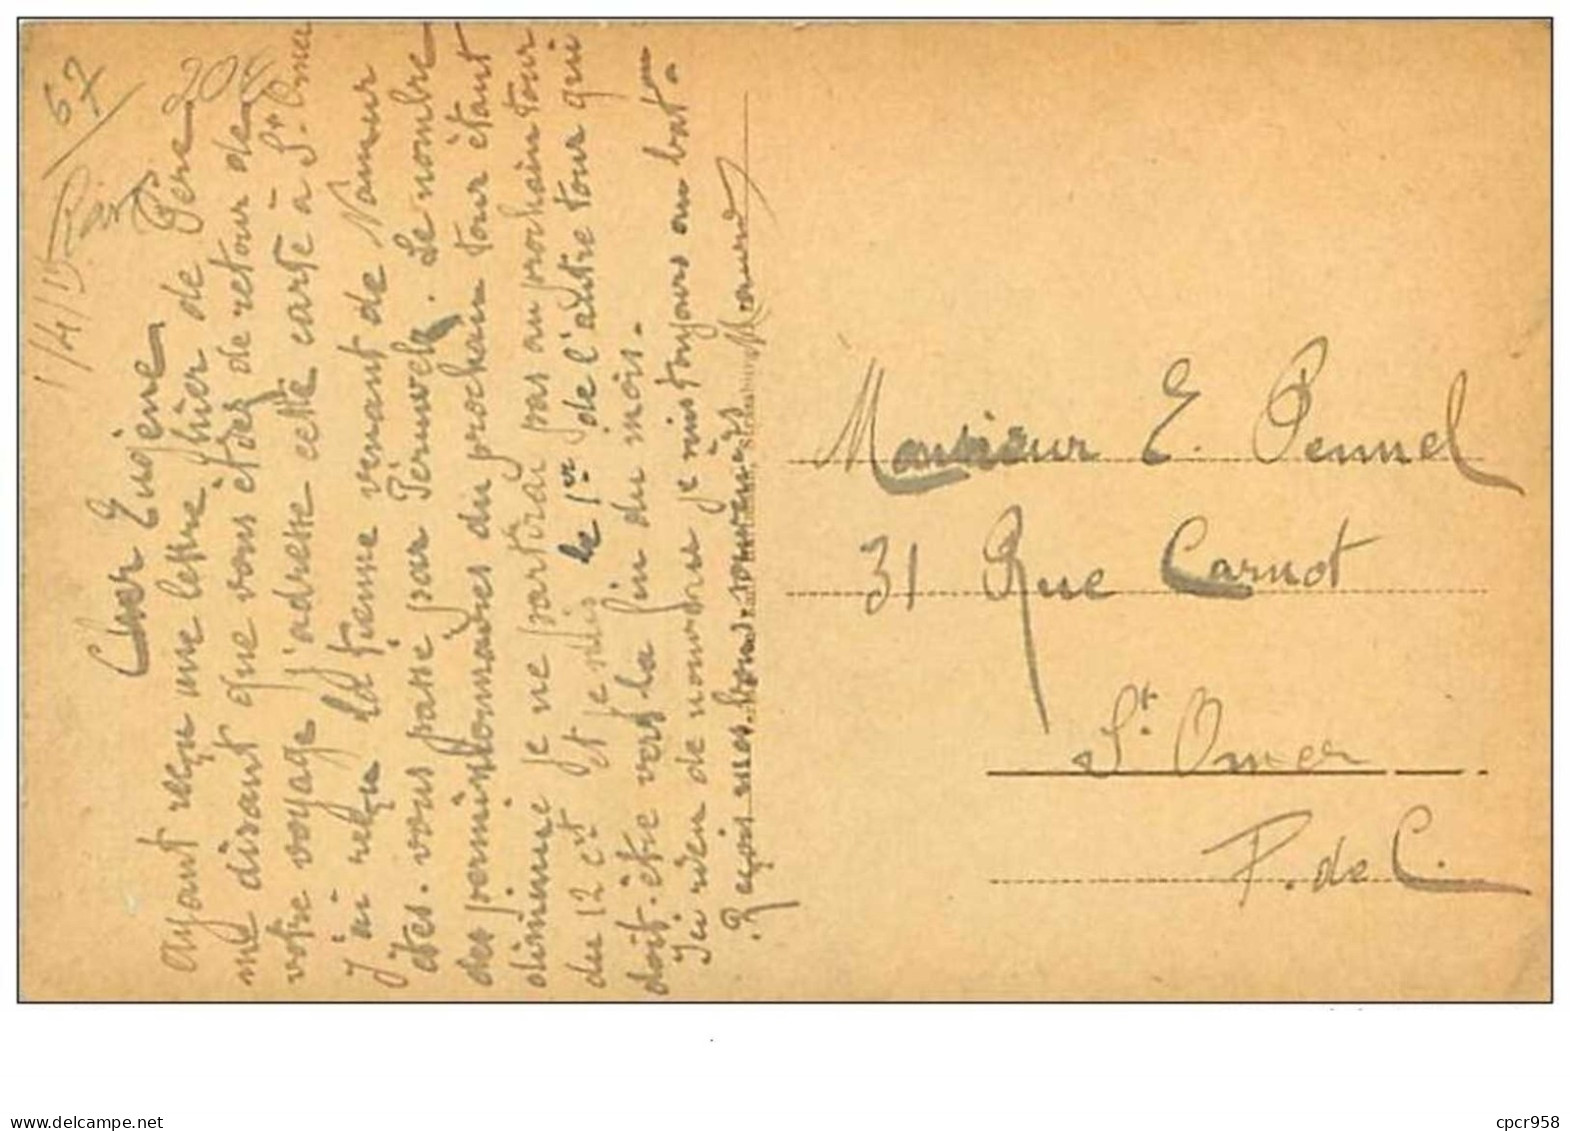 67
20 €
1/4/19
Cher Eugène
Ayant reçu une lettre hier de Père
me disant que vous êtes de retour de
votre voyage j'adresse cette carte à St. Omer
j'ai reçu la tienne venant de Namur
êtes-vous passé par Péruwelz. Le nombre
des permissionnaires du prochain tour étant
diminué je ne partirai pas au prochain tour
du 12 ct et je suis le 1er de l'autre tour qui
doit-être vers la fin du mois.
Ici rien de nouveau je suis toujours au bat.
Reçois mes bons souvenirs
Monsieur E. Pennel
31 Rue Carnot
St. Omer
P. de C.
www.delcampe.net
cpcr958